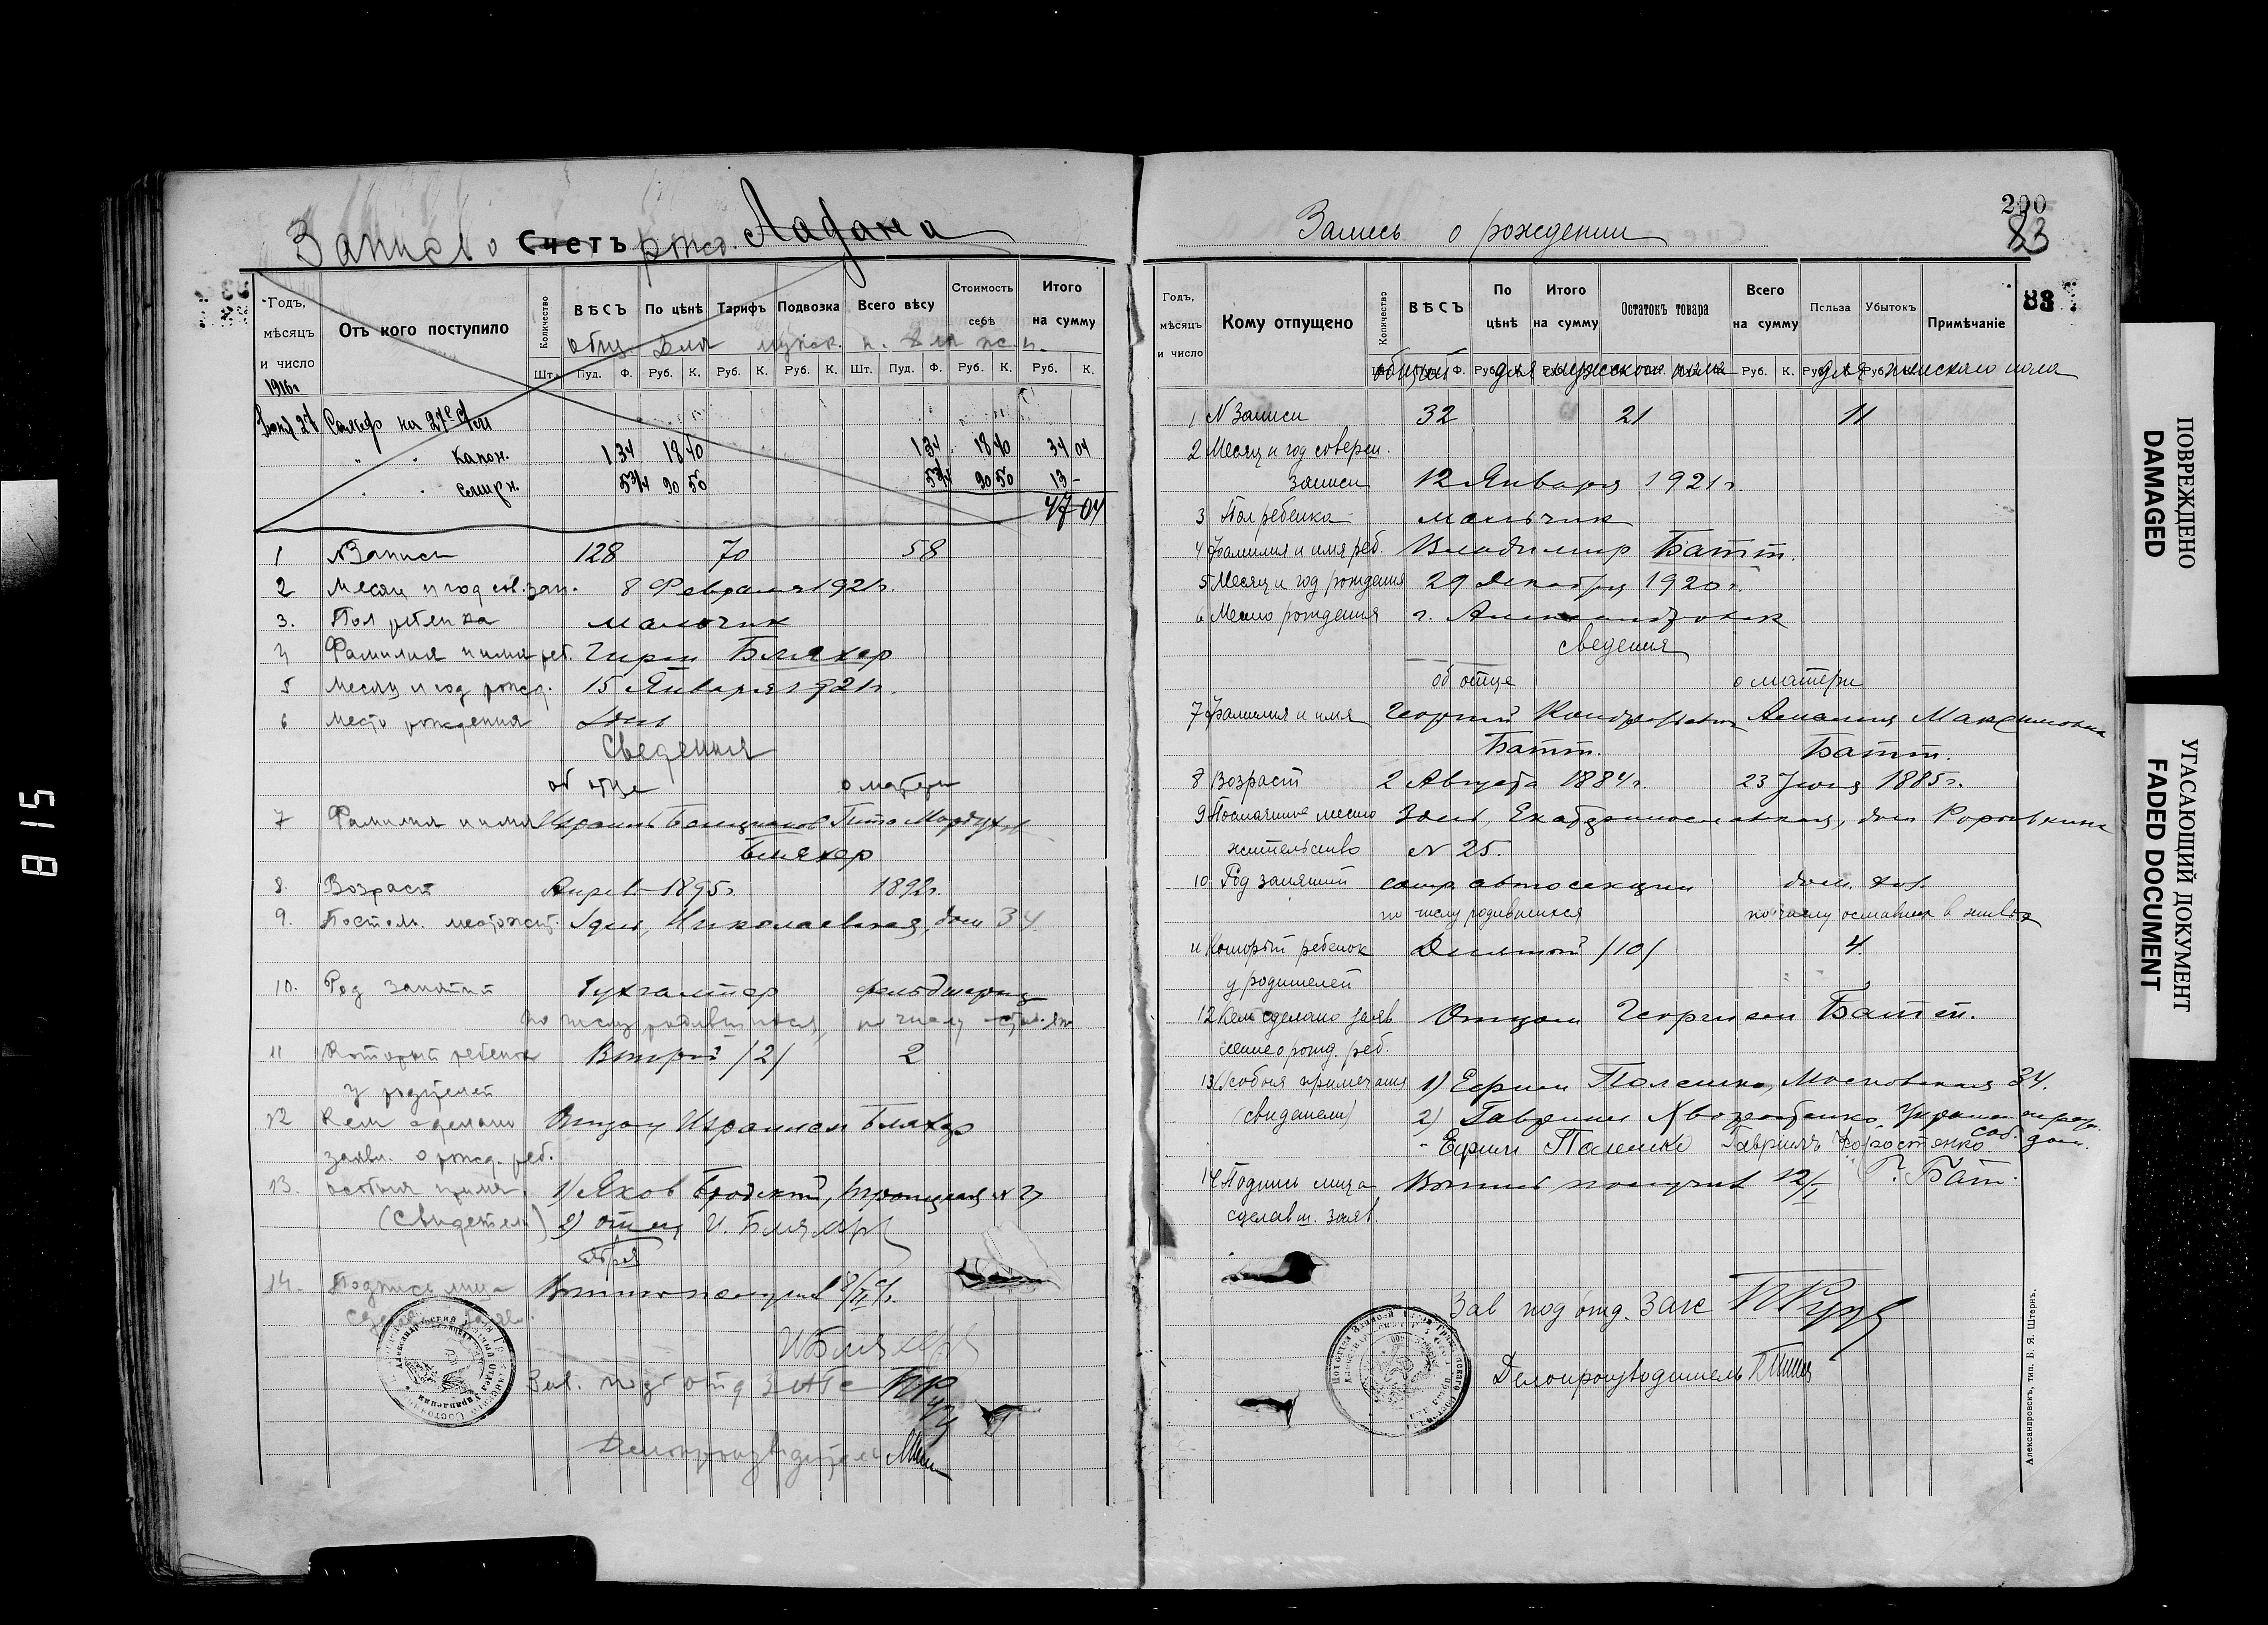 Запись о Счетъ рожд. Ладана
Годъ, мѣсяцъ и число
Отъ кого поступило
Количество
ВѢСЪ
По цѣнѣ
Тарифъ
Подвозка
Всего вѣсу
Стоимость себѣ
Итого на сумму
общ. для мужск. п. для ж. п.
Шт. Пуд. Ф. Руб. К. Руб. К. Руб. К. Шт. Пуд. Ф. Руб. К. Руб. К.
1916г
27 на 27е
" " Капон. 1 34 18 40 1 34 18 40 34 04
" " 5 3/4 90 50 5 3/4 90 50 13 -
47 04
1 № Записи 128 70 58
2 Месяц и год сов. зап. 8 Февраля 1921г.
3. Пол ребенка мальчик
4 Фамилия и имя реб. Гирш Бляхер
5 Месяц и год рожд. 15 Января 1921г.
6 Место рождения
Сведения
об отце о матери
7 Фамилия и имя Израиль
Бляхер
8. Возраст 1895г 1892г.
9. Постоян. местожит. Здесь, Николаевская, дом 34
10. Род занятий Бухгалтер фельдшерица
по числу родившихся, по числу
11 Который ребенок Второй /2/ 2
у родителей
12 Кем сделано Отцом Израилем Бляхер
заявл. о рожд. реб.
13. особыя примеч. 1) Яков Бродский, Троицкая № 27
(свидетели) 2) отец И. Бляхер
14. Подпись лица
сделав. заяв.
И Бляхер
Зав. подотд Загс
Делопроизводитель
Запись о рождении
200
83
83
Годъ, мѣсяцъ и число
Кому отпущено
Количество
ВѢСЪ
По цѣнѣ
Итого на сумму
Остатокъ товара
Всего на сумму
Польза
Убытокъ
Примѣчаніе
общий для мужского пола для женского пола
1 N Записи 32 21 11
2 Месяц и год соверш.
записи 12 Января 1921г.
3 Пол ребенка мальчик
4 Фамилия и имя реб. Владимир Батт.
5 Месяц и год рождения 29 Декабря 1920г.
6 Место рождения г. Александровск
Сведения
об отце о матери
7 Фамилия и имя Георгий Кондратьевич Максимовна
Батт. Батт.
8 Возраст 2 Августа 1884г. 23 1885г.
9 Постоянное место Здесь, Екатеринославская, дом
жительство N 25.
10 Род занятий сотр. автосекции дом. хоз.
по числу родившихся по числу оставших в живых
11 Который ребенок /10/ 4.
у родителей
12 Кем сделано заяв Отцом Георгием Батт.
ление о рожд. реб.
13 Особыя примечания 1) Ефим Полешко, Московская 34.
(свидетели) 2) Гавриил
Ефим Полешко Гавриил соб. дом.
14 Подпись лица 12/I Г. Батт
сделавш. заяв.
Зав подотд. Загс
Делопроизводитель
Александровскъ, тип. Б. Я. Штернъ.
815
ПОВРЕЖДЕНО
DAMAGED
УГАСАЮЩИЙ ДОКУМЕНТ
FADED DOCUMENT